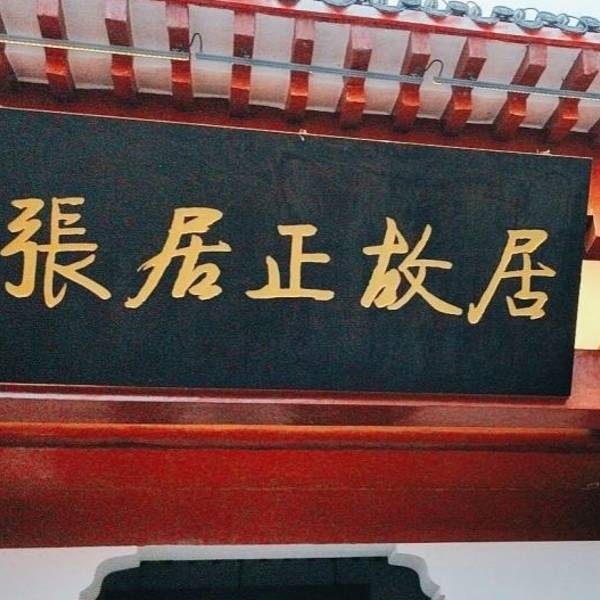 張居正故居